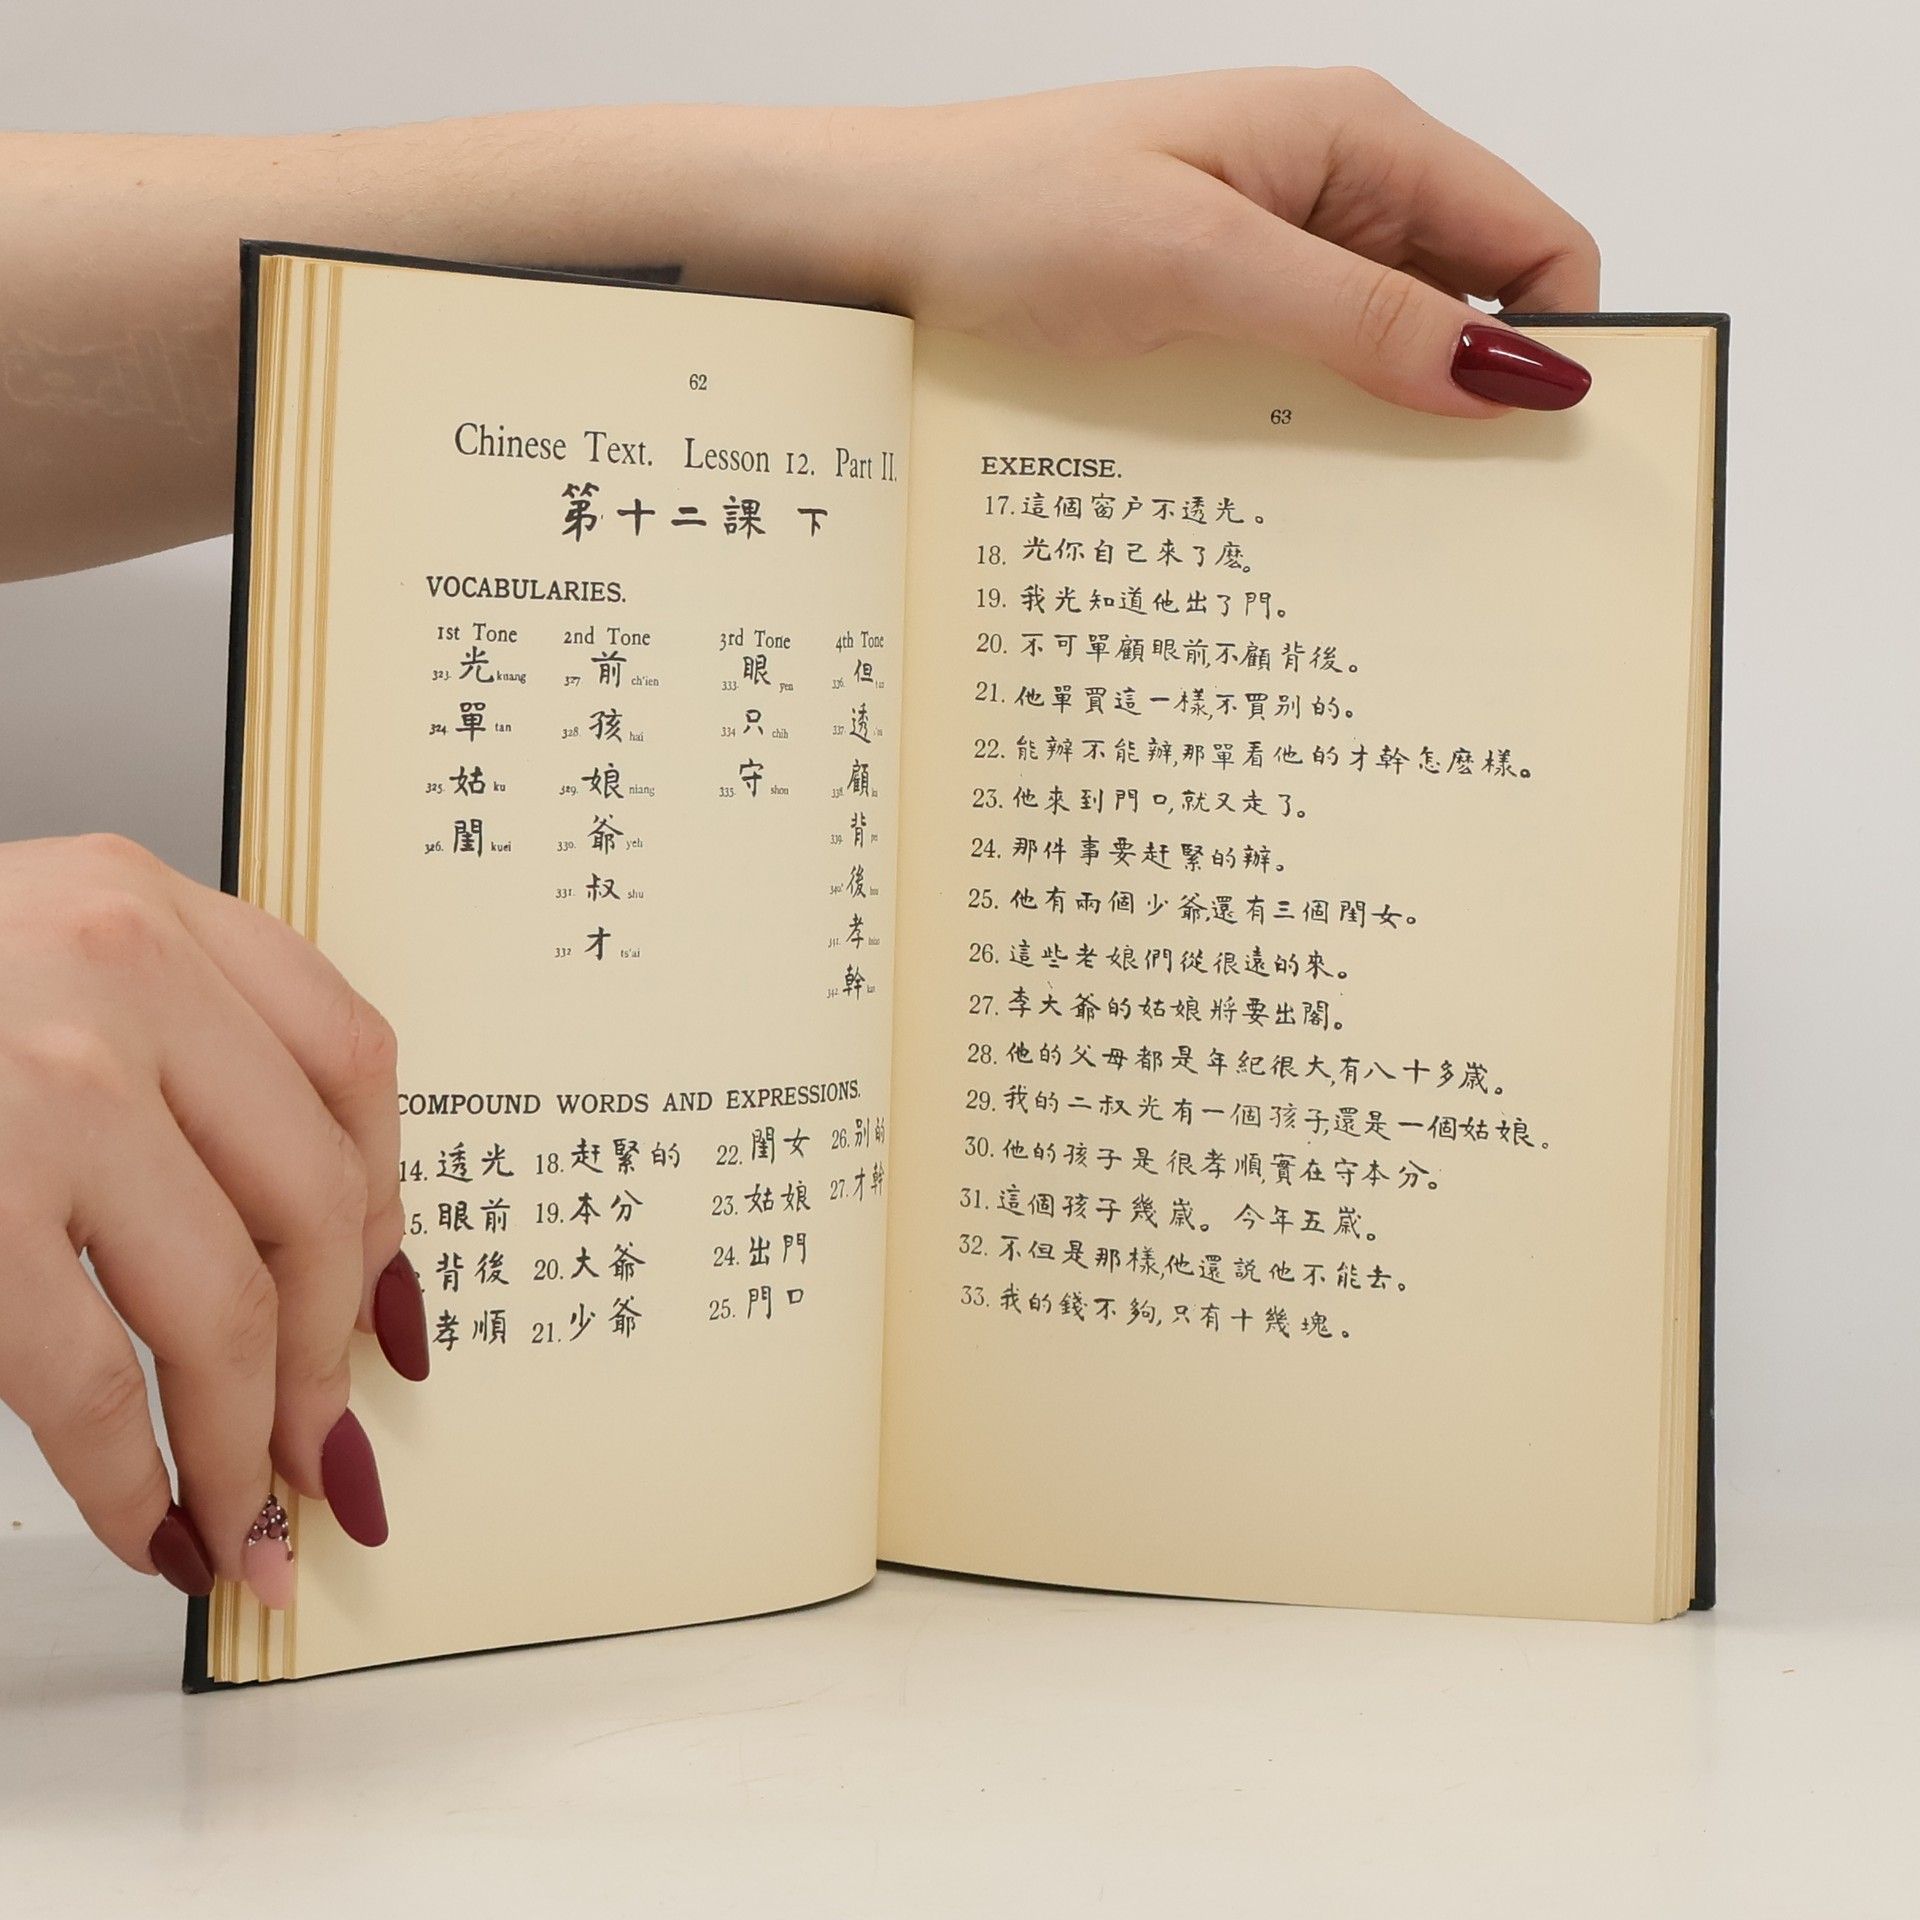 62
Chinese Text. Lesson 12. Part II.
第十二課 下
VOCABULARIES.
1st Tone 2nd Tone 3rd Tone 4th Tone
323. 光 kuang 327. 前 ch'ien 333. 眼 yen 336. 但
324. 單 tan 328. 孩 hai 334 只 chih 337. 透
325. 姑 ku 329. 娘 niang 335. 守 shou 338. 顧
326. 閨 kuei 330. 爺 yeh 339. 背 pei
331. 叔 shu 340. 後 hou
332 才 ts'ai 341. 孝
342. 幹 kan
COMPOUND WORDS AND EXPRESSIONS.
14. 透光 18. 赶緊的 22. 閨女 26. 别的
15. 眼前 19. 本分 23. 姑娘 27. 才幹
背後 20. 大爺 24. 出門
孝順 21. 少爺 25. 門口
63
EXERCISE.
17. 這個窗户不透光。
18. 光你自己來了麽。
19. 我光知道他出了門。
20. 不可單顧眼前,不顧背後。
21. 他單買這一樣,不買别的。
22. 能辦不能辦,那單看他的才幹怎麽樣。
23. 他來到門口,就又走了。
24. 那件事要赶緊的辦。
25. 他有兩個少爺,還有三個閨女。
26. 這些老娘們從很遠的來。
27. 李大爺的姑娘將要出閣。
28. 他的父母都是年紀很大,有八十多歲。
29. 我的二叔光有一個孩子,還是一個姑娘。
30. 他的孩子是很孝順,實在守本分。
31. 這個孩子幾歲。今年五歲。
32. 不但是那樣,他還説他不能去。
33. 我的錢不夠,只有十幾塊。